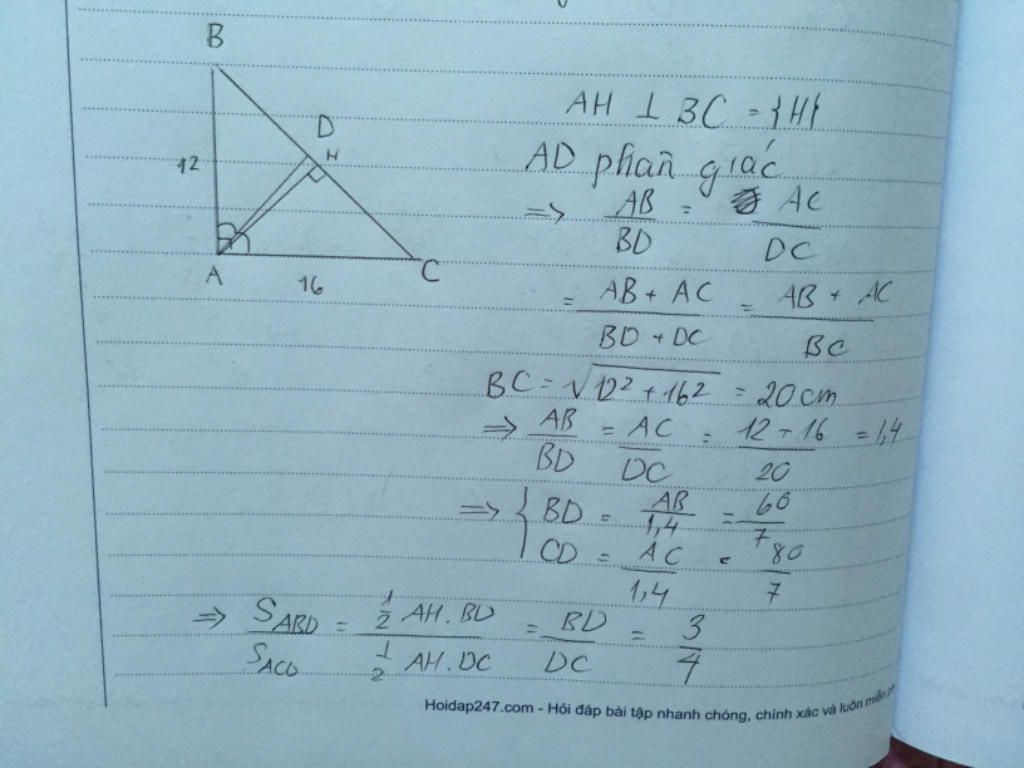 B
D
H
12
A
16
C
AH ⊥ BC = {H}
AD phân giác
=> AB/BD = AC/DC
= AB + AC/BD + DC = AB + AC/BC
BC = √12² + 16² = 20 cm
=> AB/BD = AC/DC = 12 + 16/20 = 1,4
=> { BD = AB/1,4 = 60/7
CD = AC/1,4 = 80/7
=> S_ABD/S_ACD = 1/2 AH. BD/1/2 AH. DC = BD/DC = 3/4
Hoidap247.com - Hỏi đáp bài tập nhanh chóng, chính xác và luôn miễn